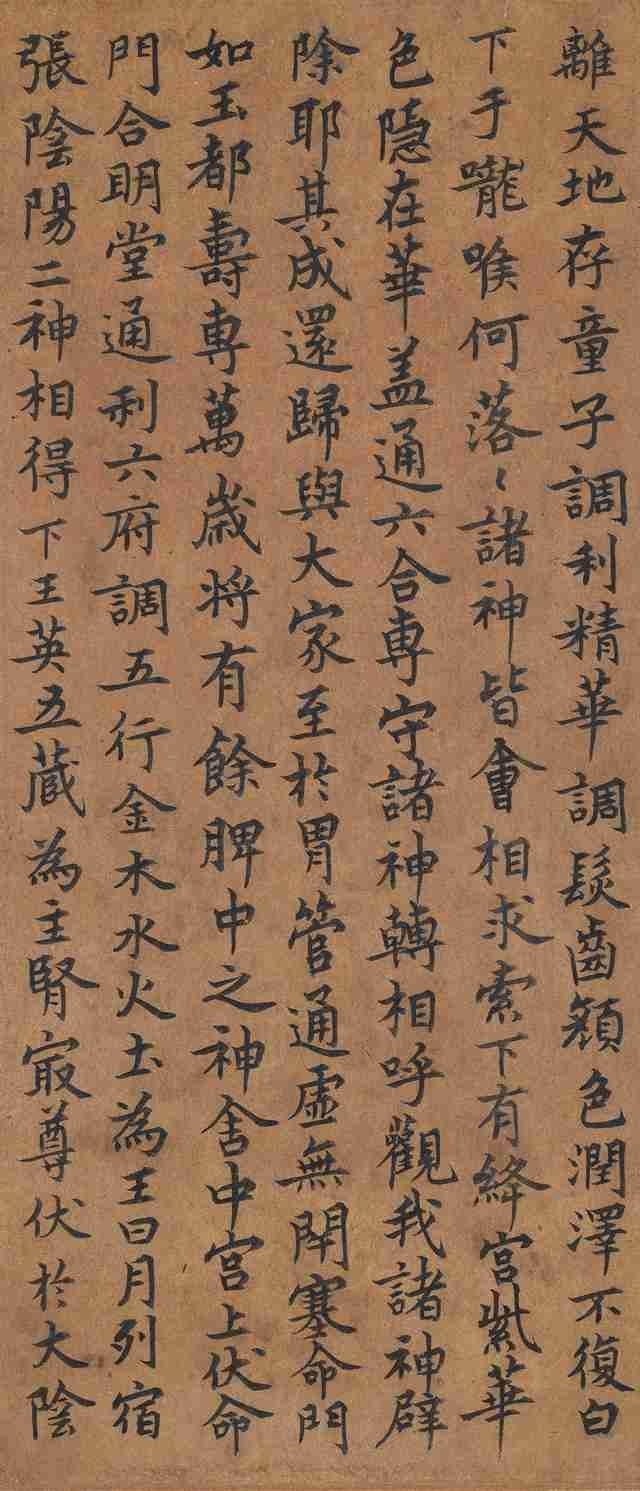 離天地存童子調利精華調髮齒顏色潤澤不復白
下于嚨喉何落〻諸神皆會相求索下有絳宮紫華
色隱在華盖通六合專守諸神轉相呼觀我諸神辟
除耶其成還歸與大家至於胃管通虛無閇塞命門
如玉都壽專萬歲将有餘脾中之神舍中宮上伏命
門合明堂通利六府調五行金木水火土為王日月列宿
張陰陽二神相得下王英五藏為主腎㝡尊伏於大陰